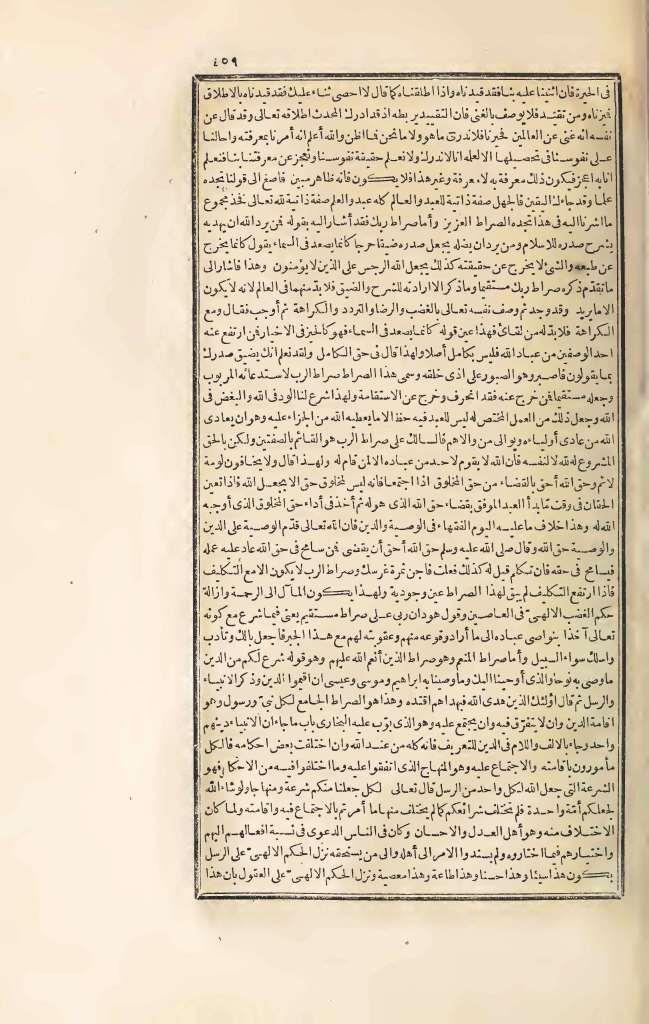 ٤٥٩
فى الحيرة فان اثنينا عليه بنا فقد قيدناه واذا اطلقناه كما قال لا احصى ثناء عليك فقد قيدناه بالاطلاق
فميزناه ومن تقيد فلا يوصف بالغنى فان التقييد يربطه اذ قد ادرك المحدث اطلاقه تعالى وقد قال عن
نفسه انه غنى عن العالمين فحيرنا فلا ندرى ما هو ولا ما نحن فما اظن والله أعلم انه أمرنا بمعرفته وأحالنا
على نفوسنا فى تحصيلها الا لعلمه انا لا ندرك ولا نعلم حقيقة نفوسنا ونعجز عن معرفتنا بنا فنعلم
انا به أعجز فيكون ذلك معرفة به لا معرفة وغير هذا فلا يكون فانه ظاهر مبين فاصغ الى قولنا تجده
علما وقد جاءك اليقين فالجهل صفة ذاتية للعبد والعالم كله عبد والعلم صفة ذاتية لله تعالى فخذ مجموع
ما اشرنا اليه فى هذا تجده الصراط العزيز وأما صراط ربك فقد أشار اليه بقوله فمن يرد الله ان يهديه
يشرح صدره للاسلام ومن يرد ان يضله يجعل صدره ضيقا حرجا كانما يصعد فى السماء يقول كانما يخرج
عن طبعه والشئ لا يخرج عن حقيقته كذلك يجعل الله الرجس على الذين لا يؤمنون وهذا فاشار الى
ما تقدم ذكره صراط ربك مستقيما وما ذكر الا ارادته للشرح والضيق فلا بد منهما فى العالم لانه لا يكون
الا ما يريد وقد وجد ثم وصف نفسه تعالى بالغضب والرضا والتردد والكراهة ثم أوجب فقال ومع
الكراهة فلا بد له من لقائى فهذا عين قوله كانما يصعد فى السماء فهو كالجبر فى الاختيار فمن ارتفع عنه
احد الوصفين من عباد الله فليس بكامل أصلا ولهذا قال فى حق الكامل ولقد نعلم انك يضيق صدرك
بما يقولون فاصبر وهو الصبور على اذى خلقه وسمى هذا الصراط صراط الرب لاستدعائه المربوب
وجعله مستقيما فمن خرج عنه فقد انحرف وخرج عن الاستقامة ولهذا شرع لنا الود فى الله والبغض فى
الله وجعل ذلك من العمل المختص له ليس للعبد فيه حظ الا ما يعطيه الله من الجزاء عليه وهو ان يعادى
الله من عادى أولياءه ويوالى من والاهم فالسالك على صراط الرب هو القائم بالصفتين ولكن بالحق
المشروع له لله لا لنفسه فان الله لا يقوم لاحد من عباده الا لمن قام له ولهذا قال ولا يخافون لومة
لائم وحق الله أحق بالقضاء من حق المخلوق اذا اجتمعا فانه ليس لمخلوق حق الا بجعل الله فاذا تعين
الحقان فى وقت ما بدأ العبد الموفق بقضاء حق الله الذى هو له ثم أخذ فى أداء حق المخلوق الذى أوجبه
الله له وهذا خلاف ما عليه اليوم الفقهاء فى الوصية والدين فان الله تعالى قدم الوصية على الدين
والوصية حق الله وقال صلى الله عليه وسلم حق الله أحق أن يقضى فمن سامح فى حق الله عاد عليه عمله
فيسامح فى حقه فان تكلم قيل له كذلك فعلت فاجن ثمرة غرسك وصراط الرب لا يكون الا مع التكليف
فاذا ارتفع التكليف لم يبق لهذا الصراط عين وجودية ولهذا يكون المآل الى الرحمة وازالة
حكم الغضب الالهى فى العاصين وقول هود ان ربى على صراط مستقيم يعنى فيما شرع مع كونه
تعالى آخذا بنواصى عباده الى ما أراد وقوعه منهم وعقوبته لهم مع هذا الجبر فاجعل بالك وتأدب
واسلك سواء السبيل وأما صراط المنعم وهو صراط الذين أنعم الله عليهم وهو قوله شرع لكم من الدين
ما وصى به نوحا والذى أوحينا اليك وما وصينا به ابراهيم وموسى وعيسى ان اقيموا الدين وذكر الانبياء
والرسل ثم قال اولئك الذين هدى الله فبهداهم اقتده وهذا هو الصراط الجامع لكل نبى ورسول وهو
اقامة الدين وان لا يتفرق فيه وان يجتمع عليه وهو الذى بوب عليه البخارى باب ما جاء ان الانبياء دينهم
واحد وجاء بالالف واللام فى الدين للتعريف فانه كله من عند الله وان اختلفت بعض احكامه فالكل
مأمورون باقامته والاجتماع عليه وهو المنهاج الذى اتفقوا عليه وما اختلفوا فيه من الاحكام فهو
الشرعة التى جعل الله لكل واحد من الرسل قال تعالى لكل جعلنا منكم شرعة ومنهاجا ولو شاء الله
لجعلكم أمة واحدة فلم تختلف شرائعكم كما لم يختلف منها ما أمرتم بالاجتماع فيه واقامته ولما كان
الاختلاف منه وهو أهل العدل والاحسان وكان فى الناس الدعوى فى نسبة افعالهم اليهم
واختيارهم فيما اختاروه ولم يسندوا الامر الى أهله والى من يستحقه نزل الحكم الالهى على الرسل
يكون هذا سيئا وهذا حسنا وهذا طاعة وهذا معصية ونزل الحكم الالهى على العقول بان هذا